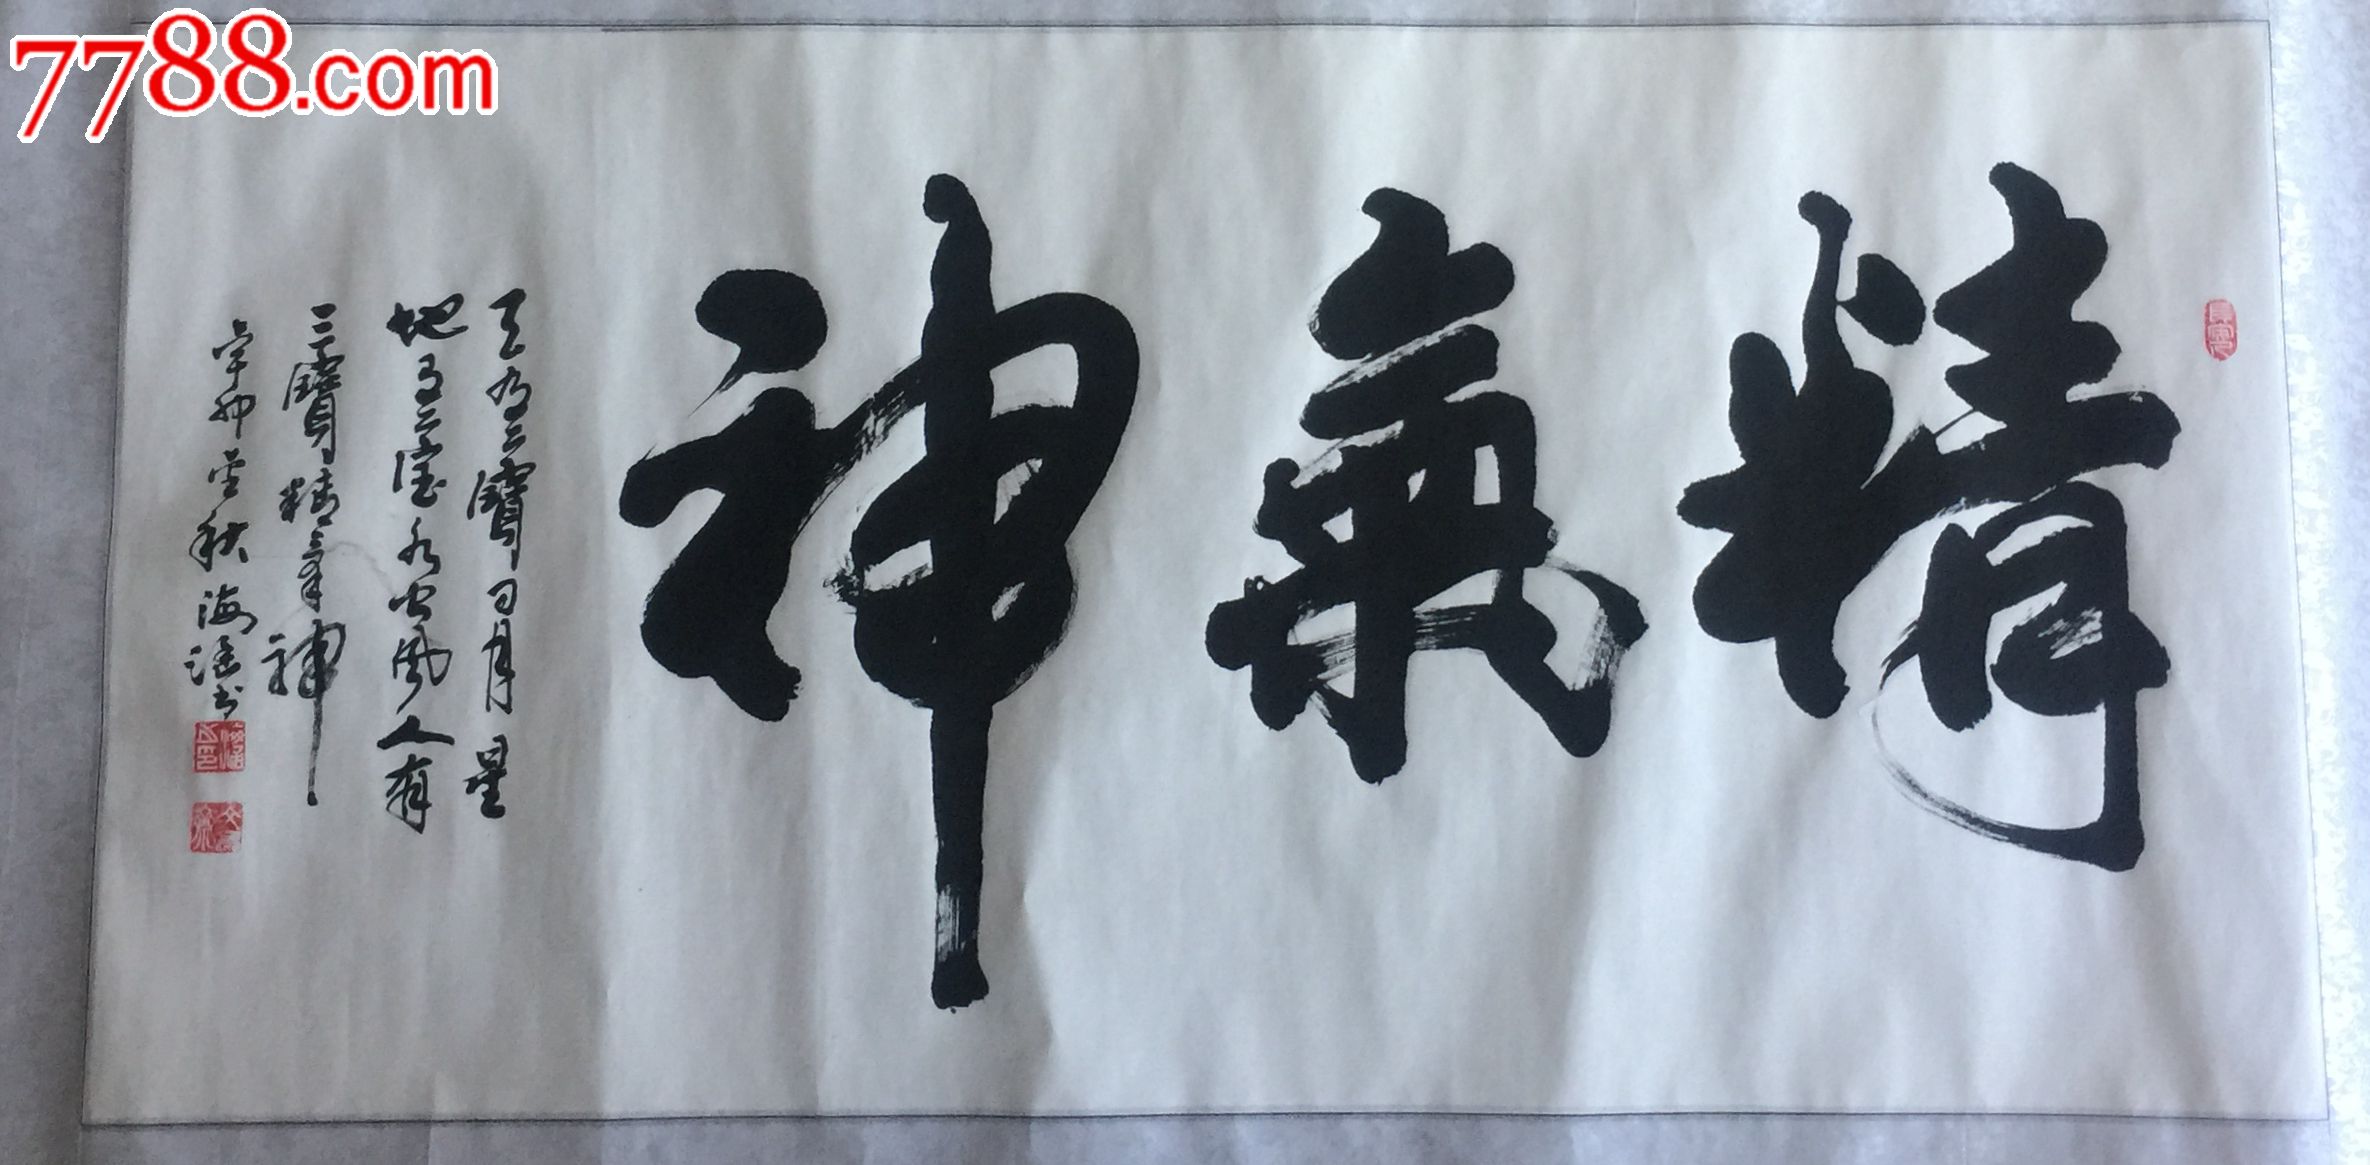 7788.com
精氣神
天有三寶日月星
地有三宝水火风人有
三寶精氣神
辛卯金秋海涵书